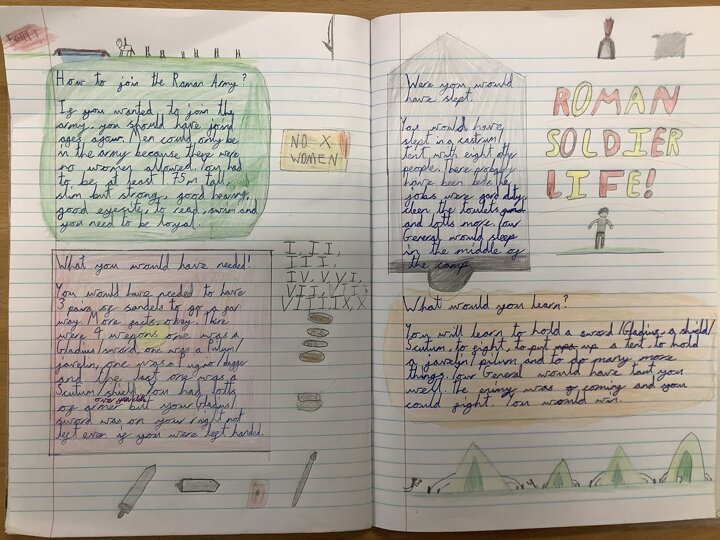 How to join the Roman Army?
If you wanted to join the
army, you should have joind
ages agow. Men could only be
in the army because there were
no women allowed. You had
to be at least 1.75m tall,
slim but strong, good hearing,
good eyesite, to read, swim and
you need to be loyal.
NO X
WOMEN
What you would have needed!
You would have needed to have
3 pairs of sandels to go a far
way. More facts, okey. There
were 4 wrepons, one was a
Gladius/sword, one was a Pilum/
javelin, one was a dagger
and the last one was a
Scutum/shield. You had lotts
of armer but your Gladius/
sword was on your right not
left even if you were left handed.
I, II,
III,
IV, V, VI,
VII, VIII,
IX, X
Were you would
have slept.
You would have
slept in a castrum/
tent with eight othr
people. There probably
have been bede. The
jobes were gard duty,
cleen the toilets
and lotts more. Your
General would sleep
in the middle of
the camp.
ROMAN
SOLDIER
LIFE!
What would you learn?
You will learn to hold a sword/Gladius, a shield/
Scutum, to fight, to put up a tent, to hold
a javelin/pilum and to do many more
things. Your General would have taut you
well. The enimy was go coming and you
could fight. You would win.